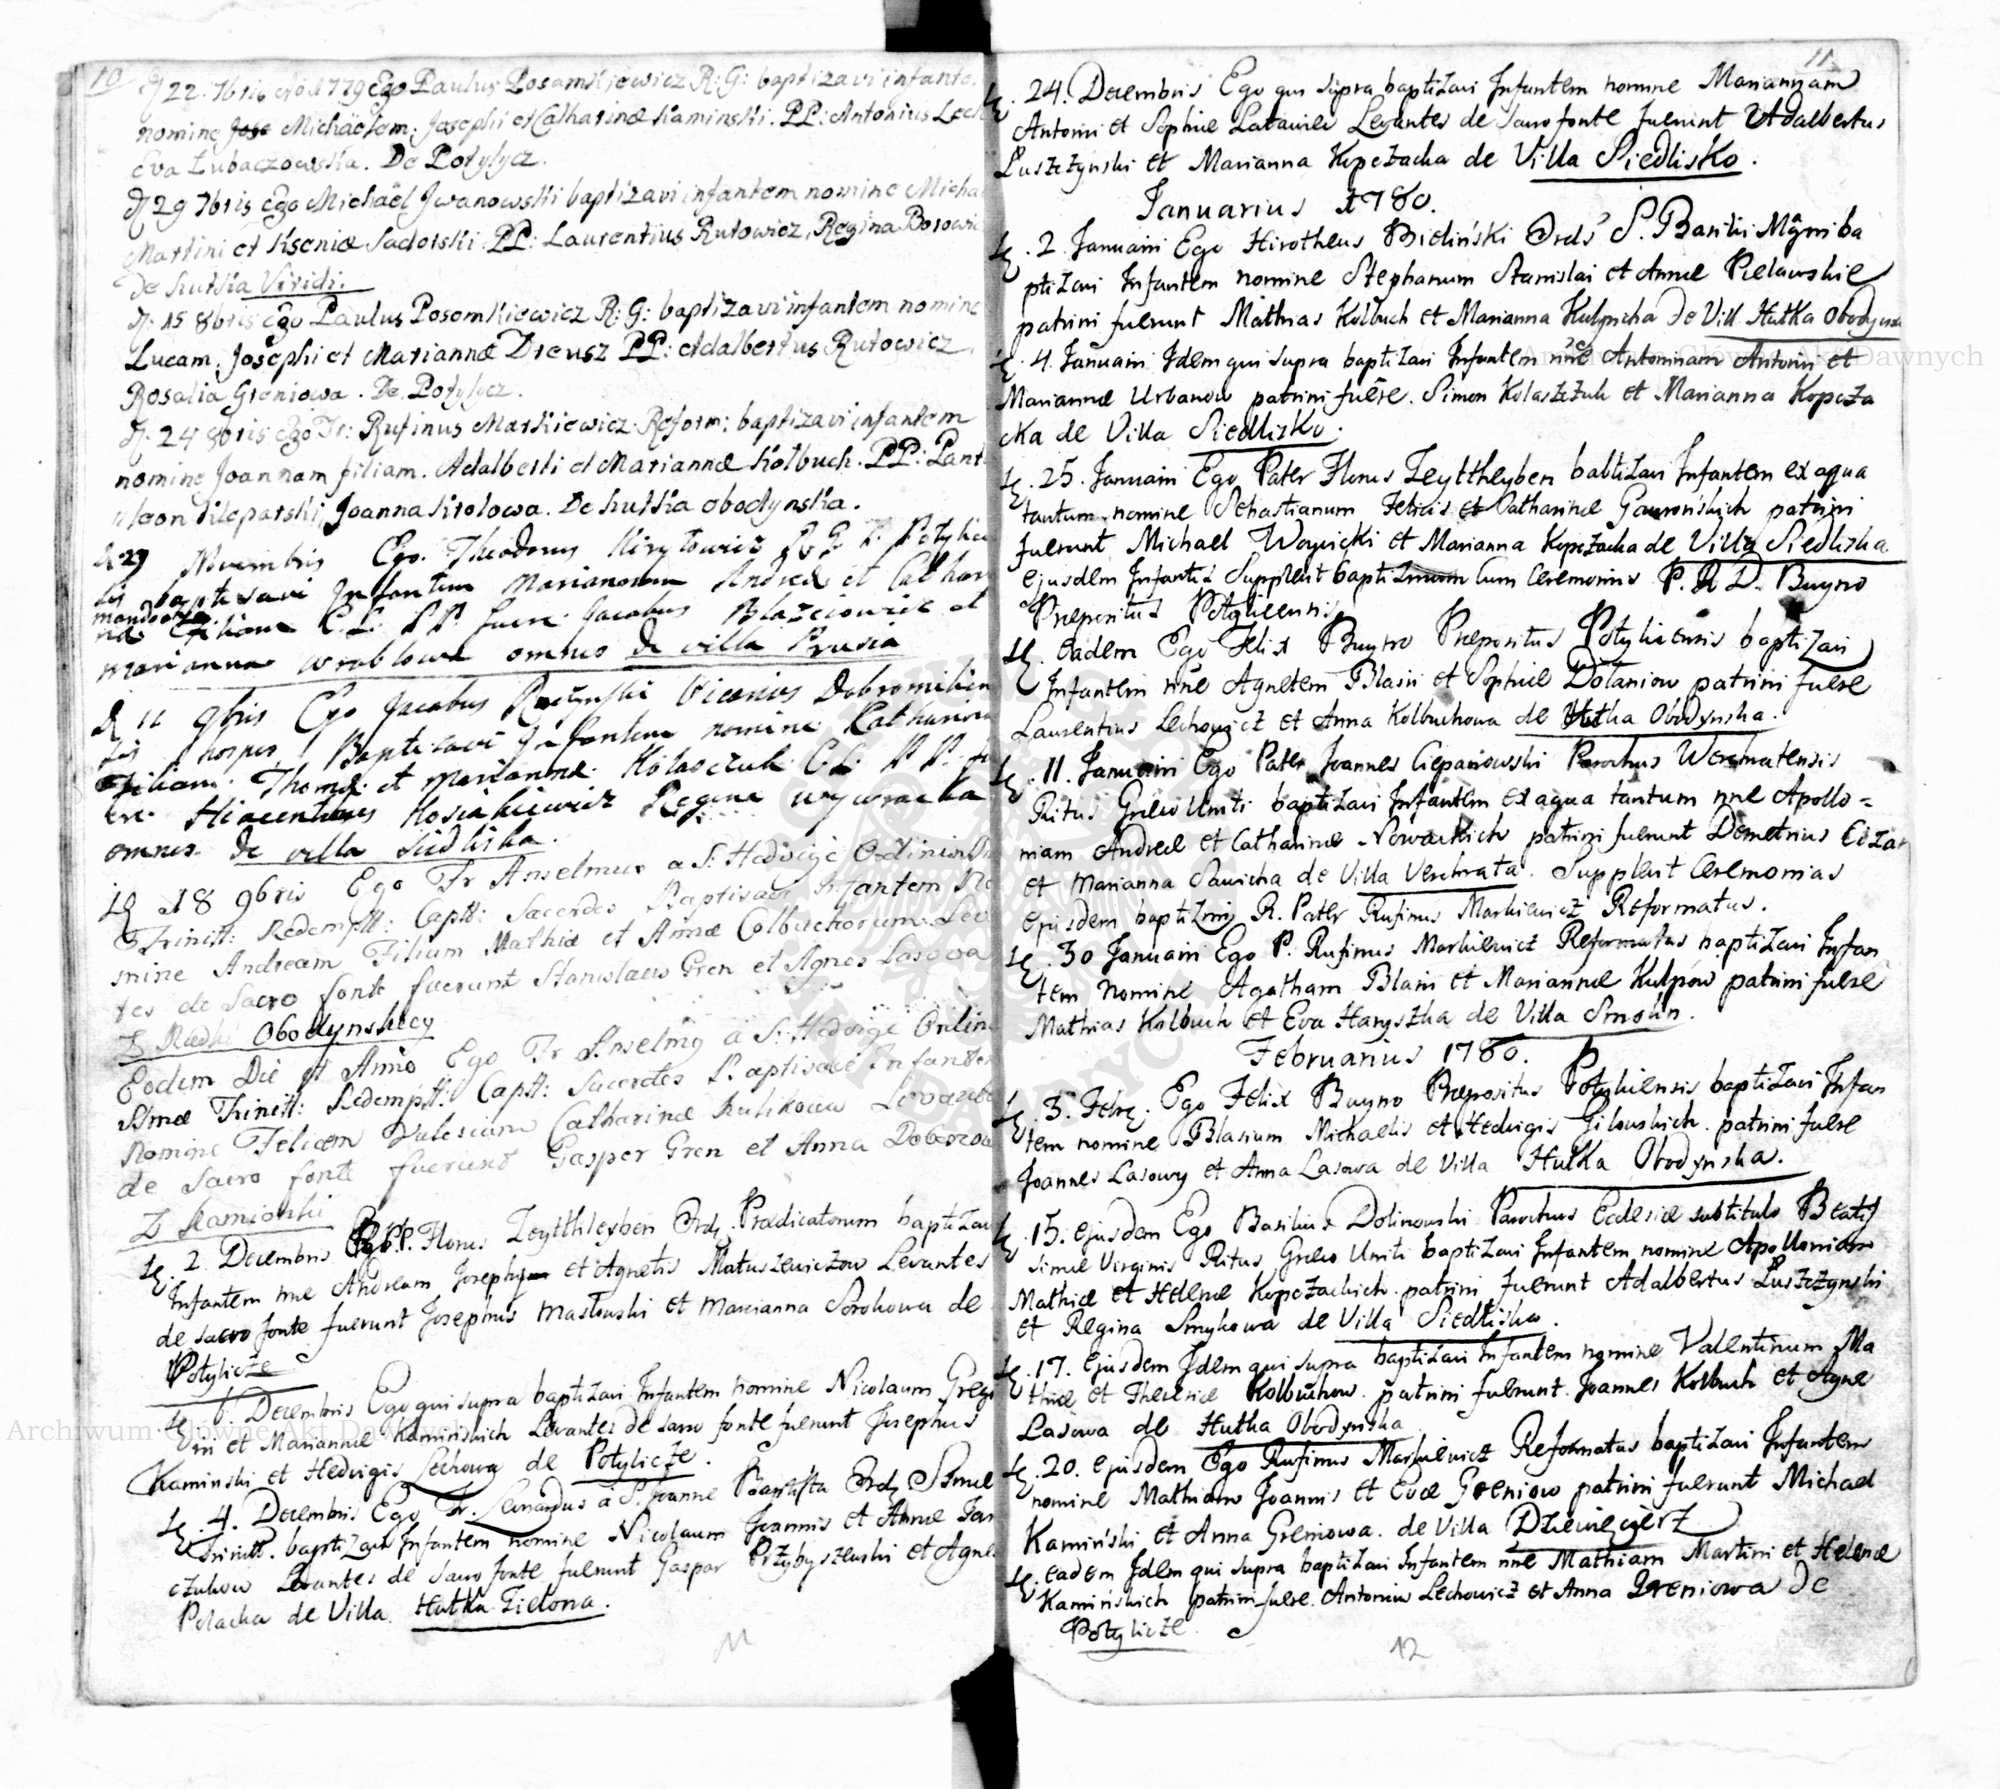 10
D 22. 7bris Ao 1779 Ego Paulus Posamkiewicz R: G: baptizavi infante.
nomine Jose Michäelem; Josephi et Catharinæ Kaminski. PP: Antonius Lech
Eva Lubaczowska. De Potylycz.
D 29 7bris Ego Michaël Jwanowski baptizavi infantem nomine Micha
Martini et Kseniæ Sadorski PP: Laurentius Rutowicz, Regina Borowi
De hutka Viridi.
D. 15 8bris Ego Paulus Posomkiewicz R: G: baptizavi infantem nomine
Lucam. Josephi et Mariannæ Dreusz PP: Adalbertus Rutowicz,
Rosalia Greniowa. De Potylycz.
D. 24 8bris Ego Fr: Rufinus Markiewicz Reform: baptizavi infantem
nomine Joannam filiam. Adalberti et Mariannæ Kolbuch. PP: Pant
leon Sleparski, Joanna Krolowa. De hutka obodynska.
D 29 Novembris Ego Theodorus Kirytowicz R G P. Potylicen
sis baptisavi Infantem Mariannam Andreæ et Cathari
næ C. L: PP. fuere Jacobus Blaszciowicz et
Marianna Wroblowa omnes de villa Prusia
D 11 9bris Ego Jacobus Raczynski Vicarius Dobromilien
sis hospes Baptisavi Infantem nomine Katharina
Filiam Thomæ et Mariannæ Kolasczuk C. L: P P. fu
ere Hiacenthus Kosiakiewicz Regina wywracka
omnes de villa Siedliska.
D 18 9bris Ego Fr Anselmus a S: Hedvige Ordinis
Trinitt: Redemptt: Captt: Sacerdos Baptisavi Infantem No
mine Andream Filium Mathiæ et Annæ Colbuchorum Leva
tes de Sacro fonte fuerunt Stanislaus Gren et Agnes Lasowa
Z Rudki Obodynskiey
Eodem Die et Anno Ego Fr Anselmg a S: Hedvige Ordin
SSmæ Trinitt: Redemptt: Captt: Sacerdos Baptisavi Infantem
Nomine Felicem Valeriani Catharinæ Kulikow Levante
de Sacro fonte fuerunt Gasper Gren et Anna Doberzow
Z Kamionki
D. 2 Decembris Ego P. Florus Leyttheyben Ord. Prædicatorum baptizavi
Infantem nne Andream Josephi et Agnetis Matuszewiczow Levantes
de sacro fonte fuerunt Josephus Masłowski et Marianna Sorokowa de
Potylicze
D 6. Decembris Ego qui supra baptizavi Infantem nomine Nicolaum Grego
rii et Mariannæ Kaminskich Levantes de sacro fonte fuerunt Josephus
Kaminski et Hedvigis Lechowa de Potylicze.
D. 4. Decembris Ego Fr. Leonardus a S. Joanne Baptista Ord. SSmæ
Trinitt. baptizavi Infantem nomine Nicolaum Joannis et Annæ Jan
czukow Levantes de Sacro fonte fuerunt Gaspar Przybyszewski et Agnes
Polacka de Villa Hutka Zielona.
11
11
D. 24. Decembris Ego qui supra baptizavi Infantem nomine Mariannam
Antonii et Sophiæ Latawiec Levantes de Sacro fonte fuerunt Adalbertus
Luszczynski et Marianna Kopczacka de Villa Siedlisko.
Januarius 1780.
D. 2. Januarii Ego Hirotheus Bieliński Ords S. Basilii Mgni ba
ptizavi Infantem nomine Stephanum Stanislai et Annæ Pielawskie
patrini fuerunt Mathias Kolbuch et Marianna Kulpicha de Vill Hutka Obodynska
D. 4. Januarii Idem qui supra baptizavi Infantem nne Antoninam Antonii et
Mariannæ Urbanow patrini fuere. Simon Kolaszczuk et Marianna Kopcza
cka de Villa Siedlisko.
D. 25. Januarii Ego Pater Florus Leyttheyben babtizavi Infantem ex aqua
tantum nomine Sebastianum Felicis et Catharinæ Gawrońskich patrini
fuerunt Michael Woynicki et Marianna Kopczacka de Villa Siedliska
Ejusdem Infantis Supplevit baptismum cum ceremoniis P. R. D. Buyno
Præpositus Potylicensis
D. Eadem Ego Felix Buyno Præpositus Potyliciensis baptizavi
Infantem nne Agnetem Blasii et Sophiæ Dolaniow patrini fuere
Laurentius Lechowicz et Anna Kolbuchowa de Hutka Obodynska.
D. 11. Januarii Ego Pater Joannes Ciepanowski Parochus Werchratensis
Ritus Græco Uniti baptizavi Infantem ex aqua tantum nne Apollo=
niam Andreæ et Catharinæ Nowackich patrini fuerunt Demetrius Cozar
et Marianna Sawicka de Villa Verchrata. Supplevit Ceremonias
ejusdem baptizmi R. Pater Rufinus Markiewicz Reformatus.
D. 30 Januarii Ego P. Rufinus Markiewicz Reformatus baptizavi Infan
tem nomine Agatham Blasii et Mariannæ Kulpow patrini fuere
Mathias Kolbuch et Eva Haryszka de Villa Smolin.
Februarius 1780.
D. 3. Febr. Ego Felix Buyno Præpositus Potyliciensis baptizavi Infan
tem nomine Blasium Michaelis et Hedvigis Gilowskich patrini fuere
Joannes Lasowy et Anna Lasowa de Villa Hutka Obodynska.
D. 15. ejusdem Ego Basilius Dolinowski Parochus Ecclesiæ subtitulo Beatis
simæ Virginis Ritus Græco Uniti baptizavi Infantem nomine Apolloniam
Mathiæ et Helenæ Kopczackich patrini fuerunt Adalbertus Luszczynski
et Regina Smykowa de Villa Siedlisko.
D. 17. ejusdem Idem qui supra baptizavi Infantem nomine Vallentinum Ma
thiæ et Theresiæ Kolbuchow. patrini fuerunt Joannes Kolbuch et Agne
Lasowa de Hutka Obodynska
D. 20. ejusdem Ego Rufinus Markiewicz Reformatus baptizavi Infantem
nomine Mathiam Joannis et Evæ Greniow patrini fuerunt Michael
Kamiński et Anna Greniowa. de Villa Dziewięcierz
D. eadem Idem qui supra baptizavi Infantem nne Mathiam Martini et Helenæ
Kamińskich patrini fuere. Antonius Lechowicz et Anna Greniowa de
Potylicze.
12